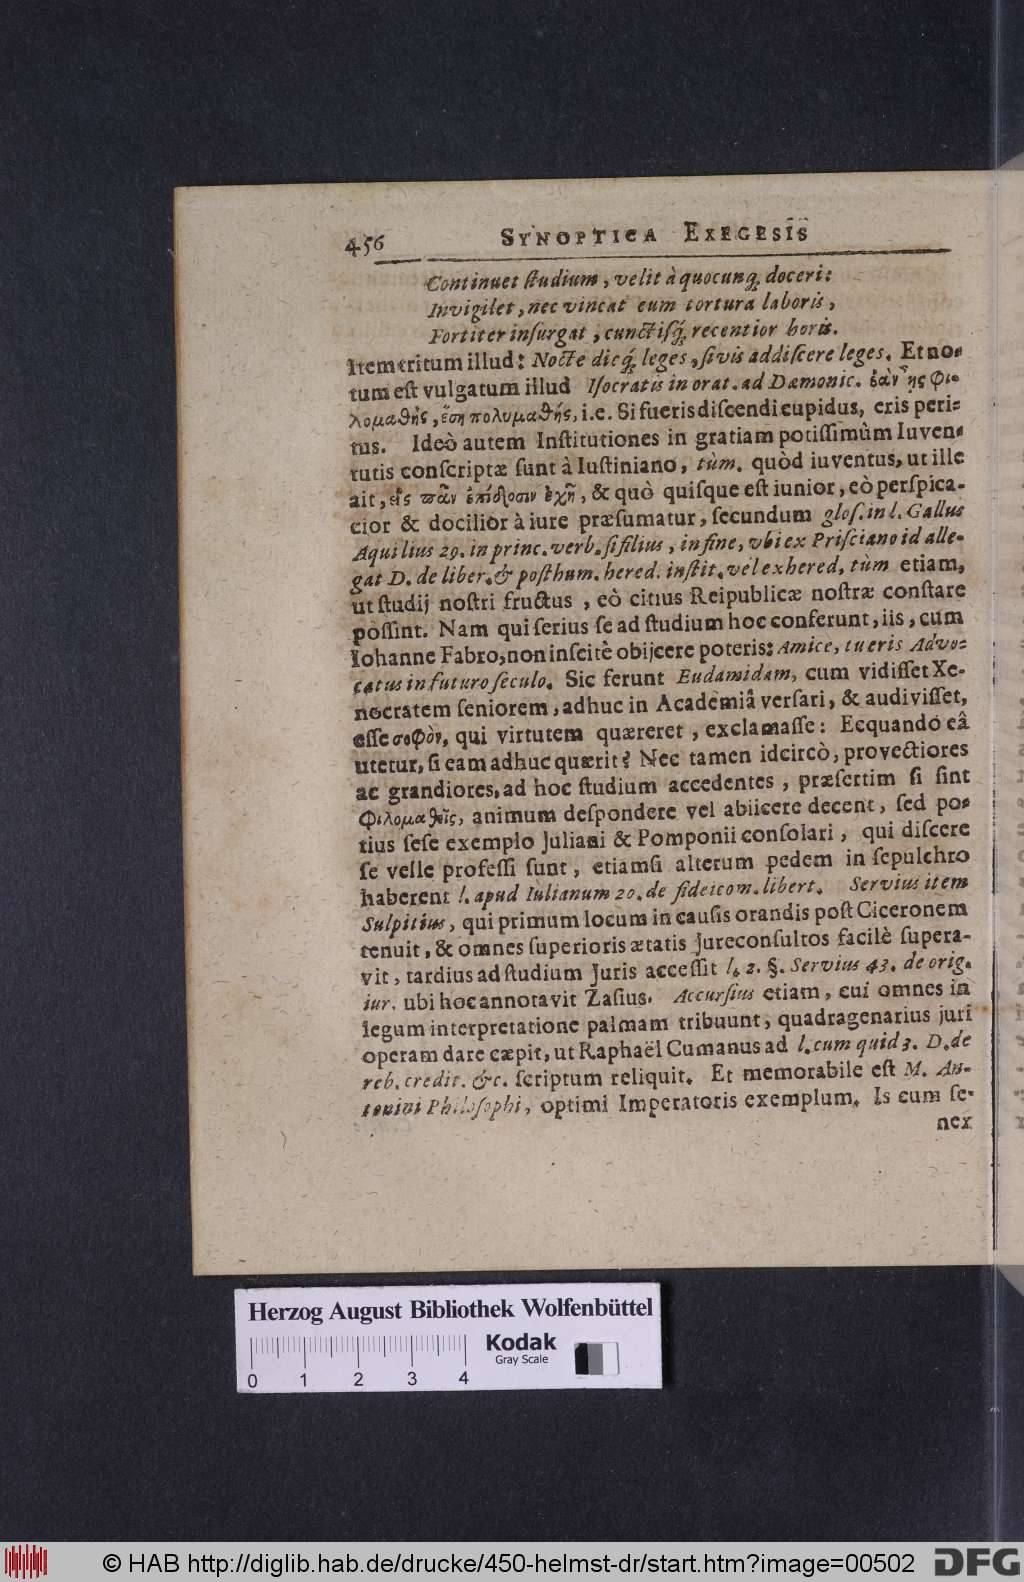 456 SYNOPTICA EXEGESIS
Continuet ſtudium, velit à quocunq́; doceri:
Invigilet, nec vincat eum tortura laboris,
Fortiter inſurgat, cunctiſq́; recentior horis.
Item tritum illud: Nocte dieq́; leges, ſi vis addiſcere leges. Et no-
tum eſt vulgatum illud Iſocratis in orat. ad Dæmonic. ἐὰν ᾖς φι-
λομαθὴς, ἔσῃ πολυμαθής, i.e. Si fueris diſcendi cupidus, eris peri-
tus. Ideò autem Inſtitutiones in gratiam potiſſimùm Iuven-
tutis conſcriptæ ſunt à Iuſtiniano, tùm. quòd iuventus, ut ille
ait, εἰς πᾶν ἐπίδοσιν ἔχῃ, & quò quiſque eſt iunior, eò perſpica-
cior & docilior à iure præſumatur, ſecundum gloſ. in l. Gallus
Aquilius 29. in princ. verb. ſi filius, in fine, vbi ex Priſciano id alle-
gat D. de liber. & poſthum. hered. inſtit. vel exhered, tùm etiam,
ut ſtudij noſtri fructus, eò citius Reipublicæ noſtræ conſtare
poſſint. Nam qui ſerius ſe ad ſtudium hoc conferunt, iis, cum
Iohanne Fabro, non inſcitè obijcere poteris: Amice, tu eris Advo-
catus in futuro ſeculo. Sic ferunt Eudamidam, cum vidiſſet Xe-
nocratem ſeniorem, adhuc in Academiâ verſari, & audiviſſet,
eſſe σοφὸν, qui virtutem quæreret, exclamaſſe: Ecquando eâ
utetur, ſi eam adhuc quærit? Nec tamen idcircò, provectiores
ac grandiores, ad hoc ſtudium accedentes, præſertim ſi ſint
φιλομαθεῖς, animum deſpondere vel abiicere decent, ſed po-
tius ſeſe exemplo Juliani & Pomponii conſolari, qui diſcere
ſe velle profeſſi ſunt, etiamſi alterum pedem in ſepulchro
haberent l. apud Iulianum 20. de fideicom. libert. Servius item
Sulpitius, qui primum locum in cauſis orandis poſt Ciceronem
tenuit, & omnes ſuperioris ætatis Jureconſultos facilè ſupera-
vit, tardius ad ſtudium Juris acceſſit l. 2. §. Servius 43. de orig.
iur. ubi hoc annotavit Zaſius. Accurſius etiam, cui omnes in
legum interpretatione palmam tribuunt, quadragenarius juri
operam dare cæpit, ut Raphaël Cumanus ad l. cum quid 3. D. de
reb. credit. &c. ſcriptum reliquit. Et memorabile eſt M. An-
tonini Philoſophi, optimi Imperatoris exemplum. Is cum ſe-
nex
Herzog August Bibliothek Wolfenbüttel
Kodak
Gray Scale
0 1 2 3 4
© HAB http://diglib.hab.de/drucke/450-helmst-dr/start.htm?image=00502 DFG